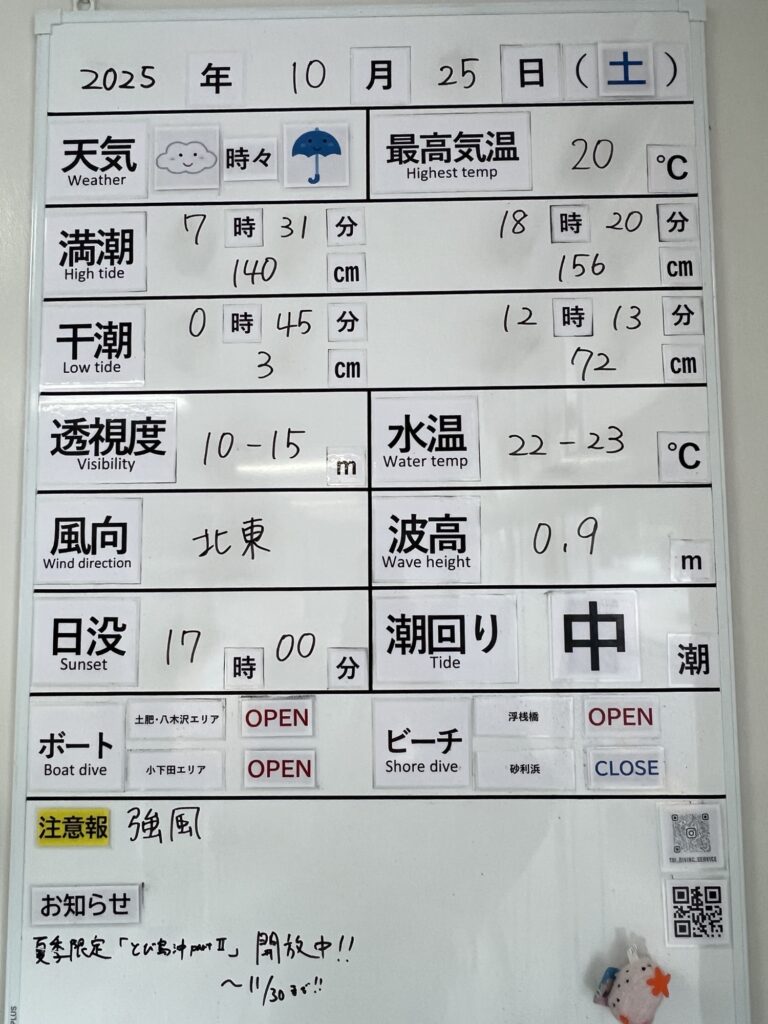 2025 年 10 月 25 日 (土)
天気 時々 最高気温 20 ℃
Weather Highest temp
満潮 7 時 31 分 18 時 20 分
High tide 140 cm 156 cm
干潮 0 時 45 分 12 時 13 分
Low tide 3 cm 72 cm
透視度 10-15 m 水温 22-23 ℃
Visibility Water temp
風向 北東 波高 0.9 m
Wind direction Wave height
日没 17 時 00 分 潮回り 中 潮
Sunset Tide
ボート 土肥・八木沢エリア OPEN ビーチ 浮桟橋 OPEN
Boat dive 小下田エリア OPEN Shore dive 砂利浜 CLOSE
注意報 強風
TOI_DIVING_SERVICE
お知らせ
夏季限定「とび島沖partⅡ」開放中!!
〜11/30まで!!
PLUS